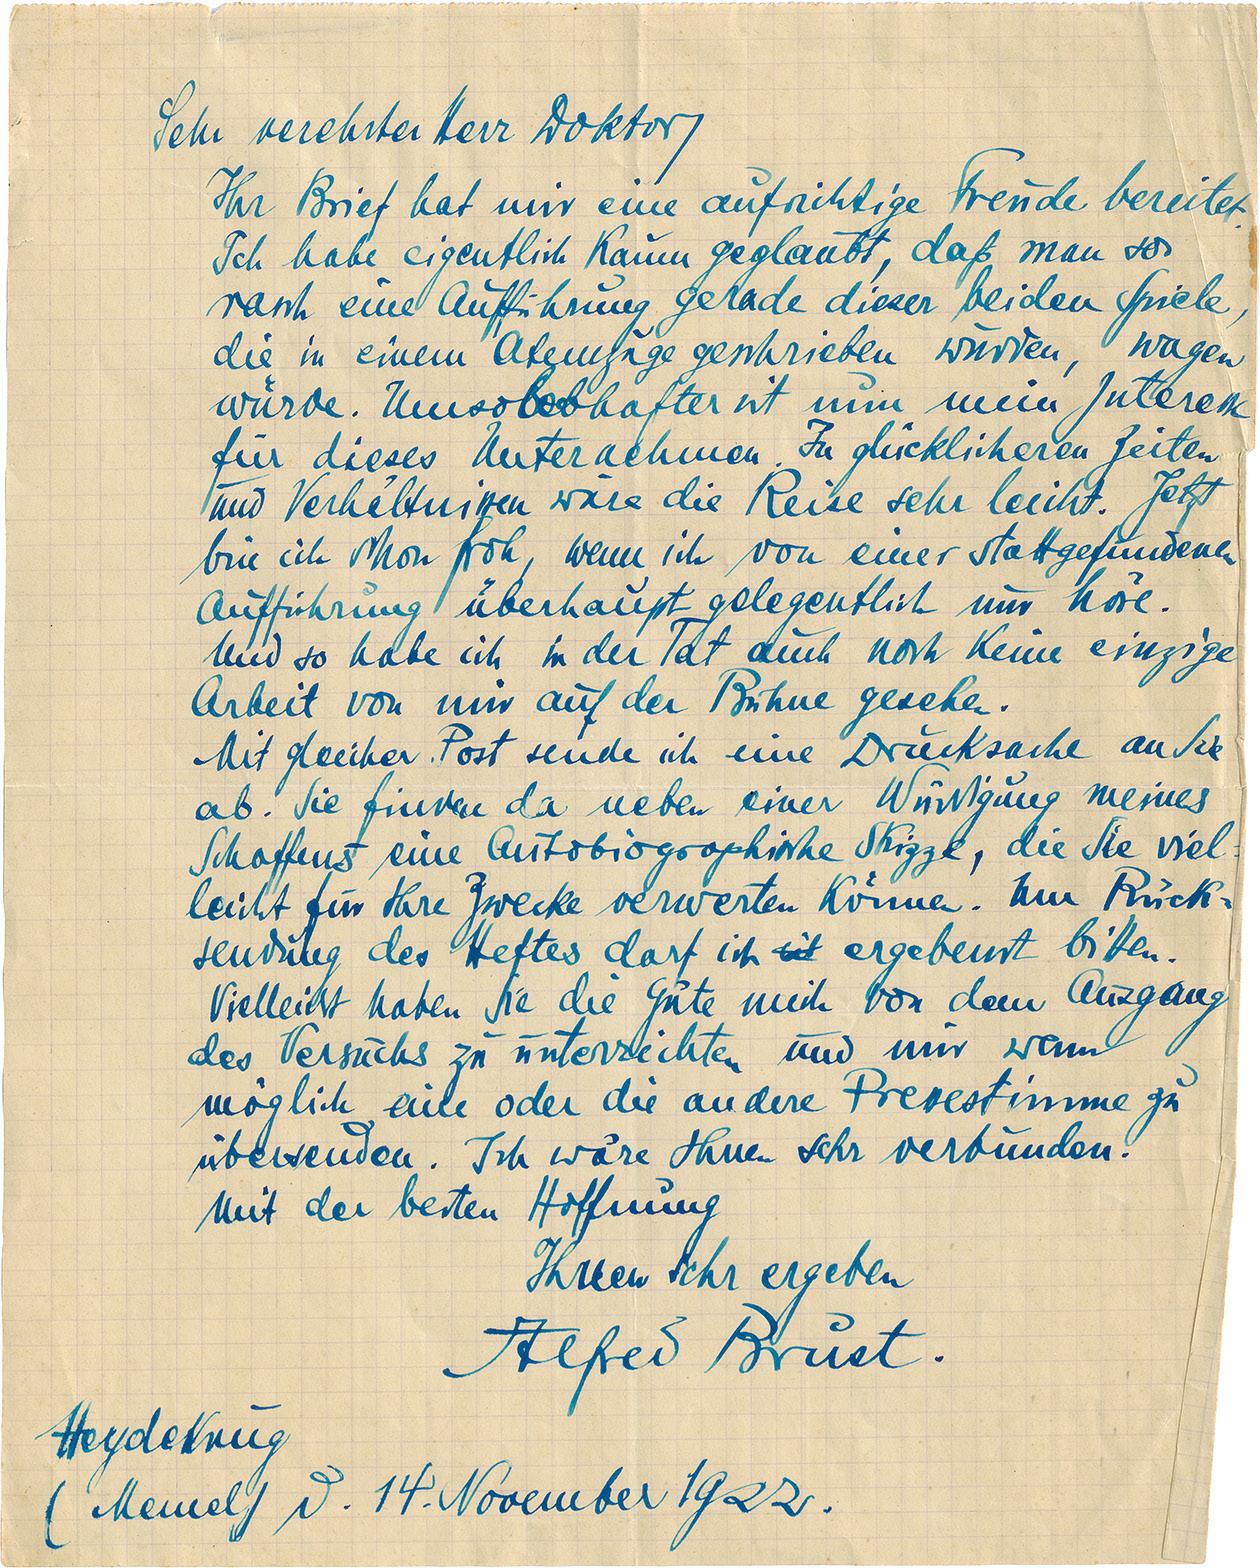 Sehr verehrter Herr Doktor,
Ihr Brief hat mir eine aufrichtige Freude bereitet.
Ich habe eigentlich kaum geglaubt, daß man so
rasch eine Aufführung gerade dieser beiden Spiele,
die in einem Atemzuge geschrieben wurden, wagen
würde. Umso lebhafter ist nun mein Interesse
für dieses Unternehmen. In glücklicheren Zeiten
und Verhältnissen wäre die Reise sehr leicht. Jetzt
bin ich schon froh, wenn ich von einer stattgefundenen
Aufführung überhaupt gelegentlich nur höre.
Und so habe ich in der Tat auch noch keine einzige
Arbeit von mir auf der Bühne gesehen.
Mit gleicher Post sende ich eine Drucksache an Sie
ab. Sie finden da neben einer Würdigung meines
Schaffens eine Autobiographische Skizze, die Sie viel=
leicht für Ihre Zwecke verwerten können. Um Rück=
sendung des Heftes darf ich ergebenst bitten.
Vielleicht haben Sie die Güte mich von dem Ausgang
des Versuchs zu unterrichten und mir wenn
möglich eine oder die andere Pressestimme zu
übersenden. Ich wäre Ihnen sehr verbunden.
Mit der besten Hoffnung
Ihnen sehr ergeben
Alfred Brust.
Heydekrug
(Memel) d. 14. November 1922.